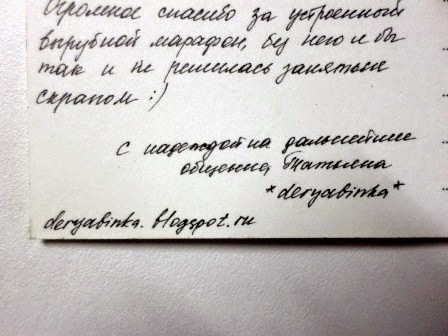 Огромное спасибо за устроенный
вырубной марафон, без него я бы
так и не решилась заняться
скрапом :)
С надеждой на дальнейшее
общение, Татьяна
*deryabinka*
deryabinka.blogspot.ru